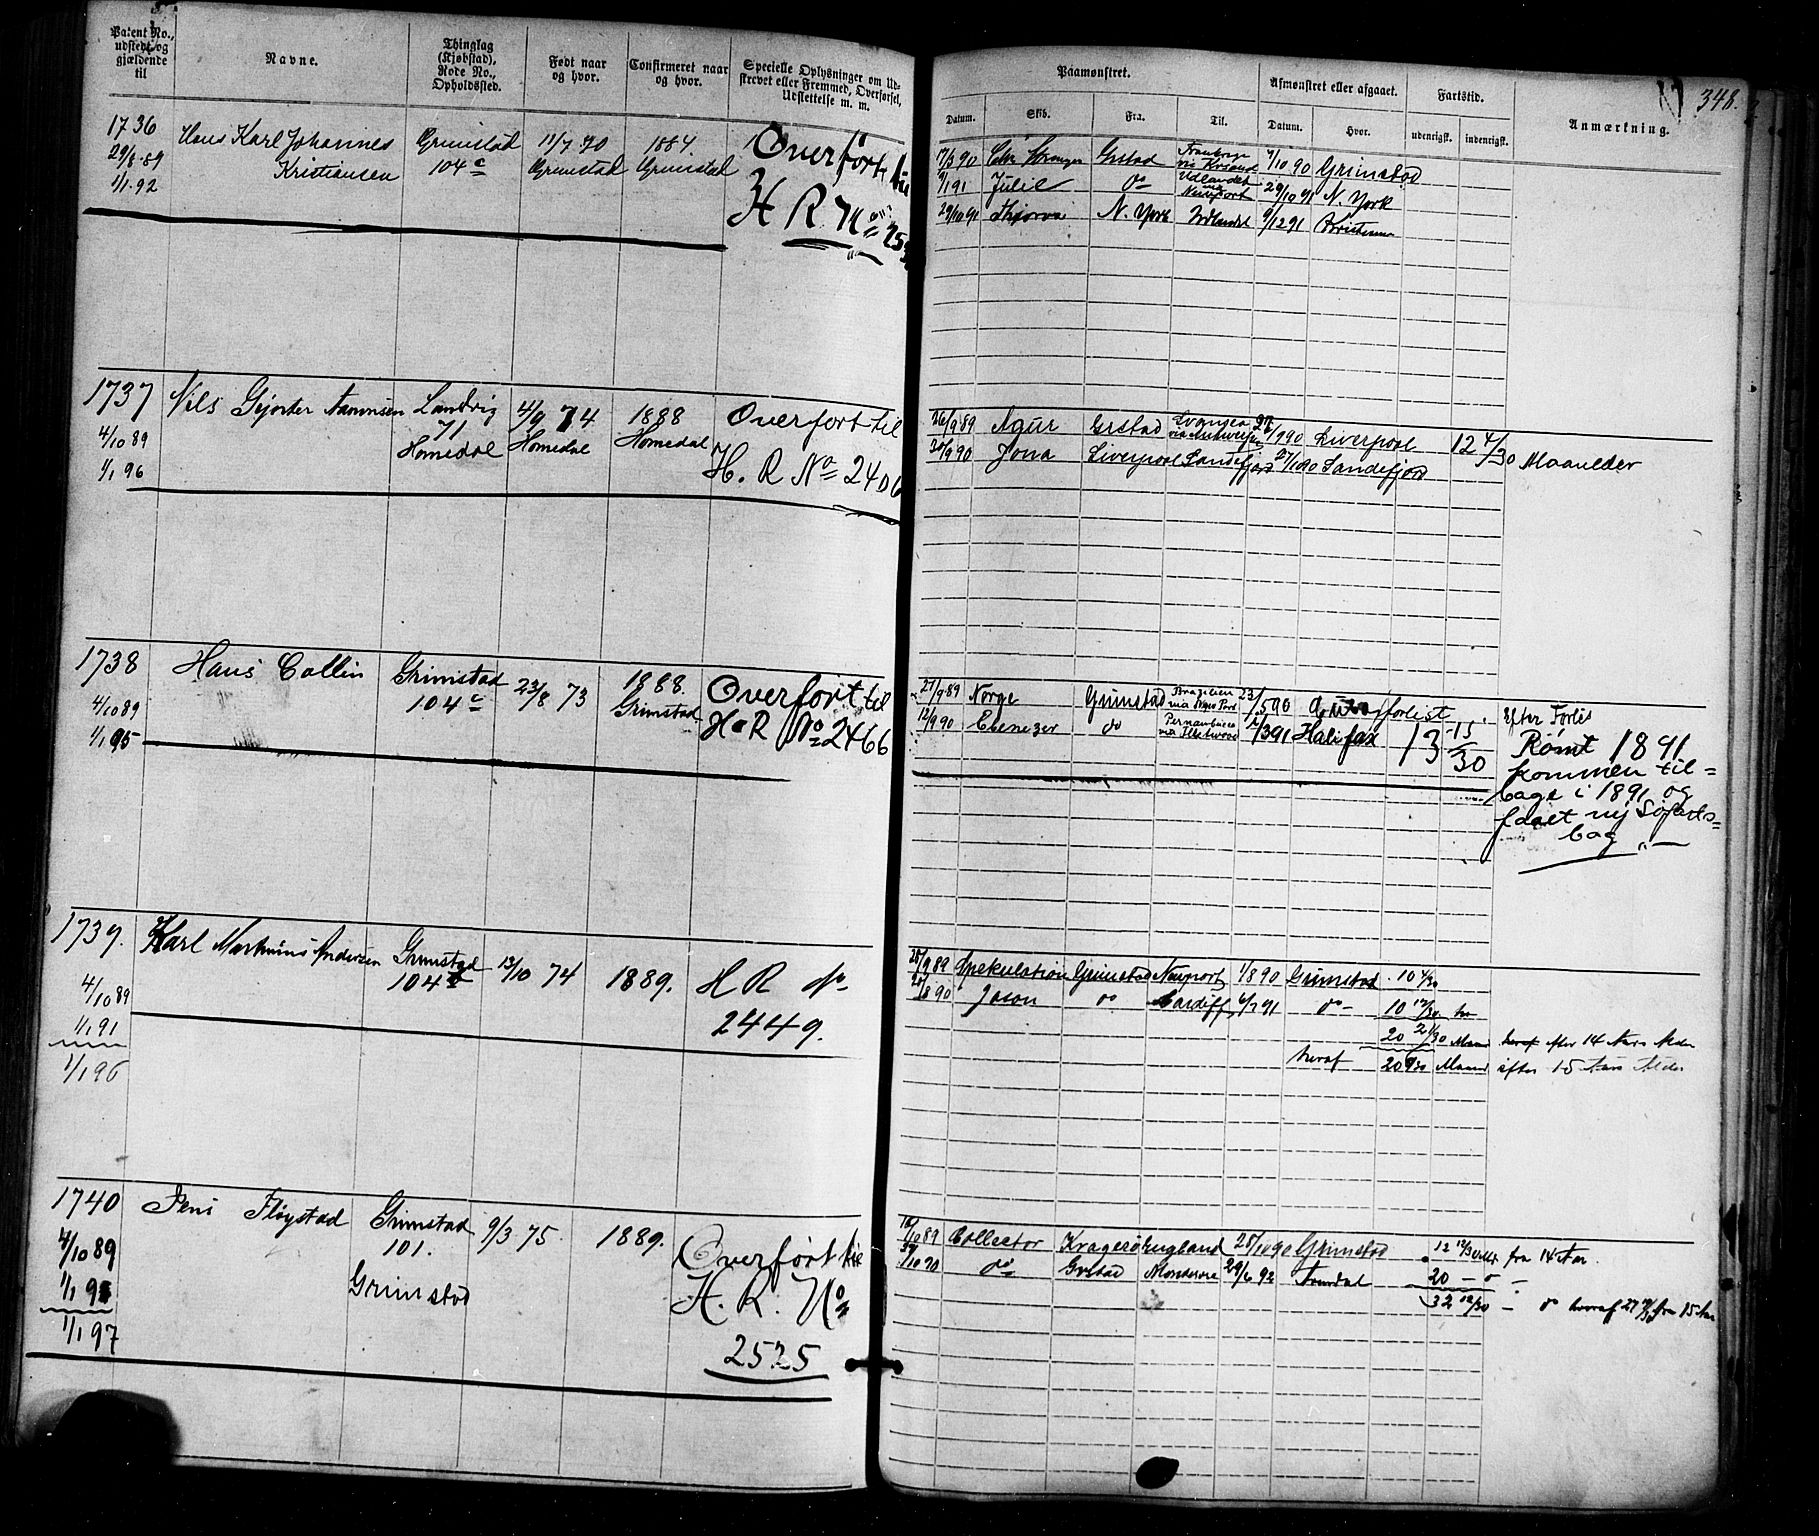 Patent No., udstedt og gjældende til
Navne.
Thinglag (Kjøbstad), Rode No., Opholdssted.
Født naar og hvor.
Confirmeret naar og hvor.
Specielle Oplysninger om Udstrevet eller Fremmed, Overførsel, Udslettelse m. m.
Paamønstret.
Afmønstret eller afgaaet.
Fartstid.
Anmærkning.
348.
Datum.
Skib.
Fra.
Til.
Datum.
Hvor.
udenrigsk.
indenrigsk.
1736
29/8 89
1/1 92
Hans Karl Johannes
Kristiansen
Grimstad
104 c
11/7 70
Grimstad
1884
Grimstad
Overført til
H R No
17/3 90
Grstad
7/10 90 Grimstad
Julie
do
Udlandet
Newport
29/10 91 N. York
29/10 91
N. York
Udlandet
9/12 91
1737
4/10 89
1/1 96
Nils Gjorter
Landvig
71
Homedal
4/9 74
Homedal
1888
Homedal
Overført til
H. R No 2400
26/9 89 Agur Grstad
Liverpool
12 4/30 Maaneder
Jona Liverpool Sandefjord 27/10 90 Sandefjord
1738
4/10 89
1/1 95
Hans Collin
Grimstad
104 c
23/8 73
1888.
Grimstad
Overført til
H R No 2466
27/9 89 Norge Grimstad Brasilien 23/5 90
forlist
12/9 90 Ebenezer do Pernambuco
via Fleetwood
1/3 91 Halifax
13 15/30
Efter Forlis
Rømt 1891
kommen til=
bage i 1891 og
faaet ny Søfarts=
bog
1739.
4/10 89
1/1 91
1/1 96
Karl Markinus Andersen
Grimstad
104
13/10 74
1889.
H R No
2449.
28/9 89 Spekulation Grimstad Newport 1/8 90 Grimstad 10
8 90 Jason do Cardiff 6/7 91 do 10 12/30
20 21/30 Maan heraf efter 14 Aars Alder
heraf 20 9/30 Maan efter 15 Aars Alder
1740
4/10 89
1/1 95
1/1 97
Jens Fløystad
Grimstad
101.
Grimstad
9/3 75.
1889.
Overført til
H. R. No
2525
10 89 Collector Kragerø England 28/10 90 Grimstad
12 12/30 Mdr fra 14 Aar
10 90 do Grstad 29/6 92 Arendal
20 — o —
32 12/30 — do heraf 27 fra 15 Aar